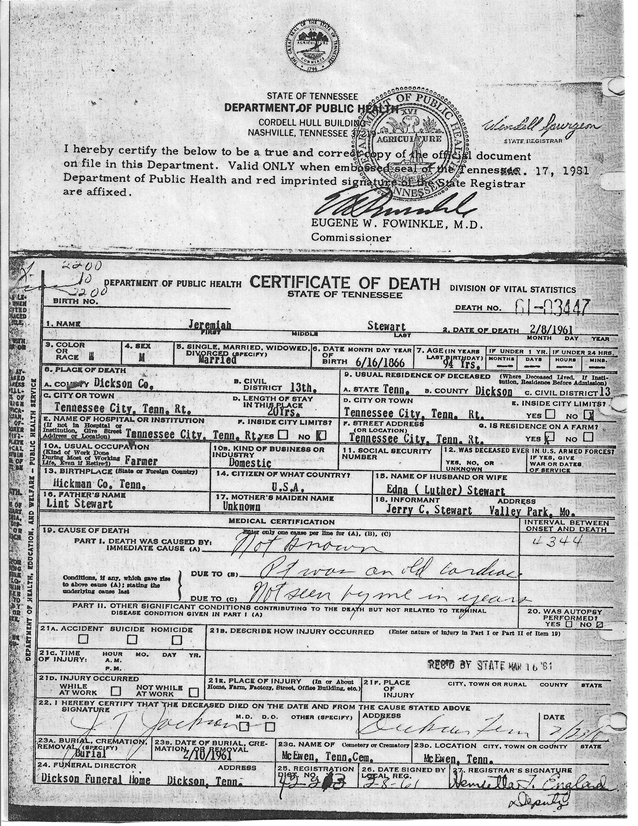 THE GREAT SEAL OF THE STATE OF TENNESSEE
AGRICULTURE
COMMERCE
1796
STATE OF TENNESSEE
DEPARTMENT OF PUBLIC HEALTH
CORDELL HULL BUILDING
NASHVILLE, TENNESSEE
DEPARTMENT OF PUBLIC HEALTH
XVI
AGRICULTURE
TENNESSEE
Wendell Spurgeon
STATE REGISTRAR
I hereby certify the below to be a true and correct copy of the official document
on file in this Department. Valid ONLY when embossed seal of the Tennessee MAR. 17, 1981
Department of Public Health and red imprinted signature of the State Registrar
are affixed.
EUGENE W. FOWINKLE, M.D.
Commissioner
2200
10
2200
DEPARTMENT OF PUBLIC HEALTH CERTIFICATE OF DEATH DIVISION OF VITAL STATISTICS
STATE OF TENNESSEE
BIRTH NO. DEATH NO. 61-03447
1. NAME Jeremiah Stewart 2. DATE OF DEATH 2/8/1961
FIRST MIDDLE LAST MONTH DAY YEAR
3. COLOR OR RACE W 4. SEX M 5. SINGLE, MARRIED, WIDOWED, DIVORCED (SPECIFY) Married 6. DATE MONTH DAY YEAR OF BIRTH 6/16/1866 7. AGE (IN YEARS LAST BIRTHDAY) 94 Yrs. IF UNDER 1 YR. MONTHS DAYS IF UNDER 24 HRS. HOURS MINS.
8. PLACE OF DEATH 9. USUAL RESIDENCE OF DECEASED (Where Deceased Lived, If Institution, Residence Before Admission)
A. COUNTY Dickson Co. B. CIVIL DISTRICT 13th. A. STATE Tenn. B. COUNTY Dickson C. CIVIL DISTRICT 13
C. CITY OR TOWN Tennessee City, Tenn. Rt. D. LENGTH OF STAY IN THIS PLACE 20Yrs. D. CITY OR TOWN Tennessee City, Tenn. Rt. E. INSIDE CITY LIMITS? YES NO X
E. NAME OF HOSPITAL OR INSTITUTION (If not in Hospital or Institution, Give Street Address or Location) Tennessee City, Tenn. Rt. F. INSIDE CITY LIMITS? YES NO X F. STREET ADDRESS (OR LOCATION) Tennessee City, Tenn. Rt. G. IS RESIDENCE ON A FARM? YES X NO
10A. USUAL OCCUPATION (Kind of Work Done During Most of Working Life, Even if Retired) Farmer 10B. KIND OF BUSINESS OR INDUSTRY Domestic 11. SOCIAL SECURITY NUMBER 12. WAS DECEASED EVER IN U.S. ARMED FORCES? YES, NO, OR UNKNOWN IF YES, GIVE WAR OR DATES OF SERVICE
13. BIRTHPLACE (State or Foreign Country) Hickman Co. Tenn. 14. CITIZEN OF WHAT COUNTRY? U.S.A. 15. NAME OF HUSBAND OR WIFE Edna (Luther) Stewart
16. FATHER'S NAME Lint Stewart 17. MOTHER'S MAIDEN NAME Unknown 18. INFORMANT ADDRESS Jerry C. Stewart Valley Park, Mo.
MEDICAL CERTIFICATION INTERVAL BETWEEN ONSET AND DEATH
19. CAUSE OF DEATH Enter only one cause per line for (A), (B), (C)
PART I. DEATH WAS CAUSED BY: IMMEDIATE CAUSE (A) Not known 4344
Conditions, if any, which gave rise to above cause (A); stating the underlying cause last
DUE TO (B) Pt was an old cardiac
DUE TO (C) Not seen by me in years
PART II. OTHER SIGNIFICANT CONDITIONS CONTRIBUTING TO THE DEATH BUT NOT RELATED TO TERMINAL DISEASE CONDITION GIVEN IN PART I (A) 20. WAS AUTOPSY PERFORMED? YES NO
21A. ACCIDENT SUICIDE HOMICIDE 21B. DESCRIBE HOW INJURY OCCURRED (Enter nature of Injury in Part I or Part II of Item 19)
21C. TIME OF INJURY: HOUR MO. DAY YR. A.M. P.M. REC'D BY STATE MAR 16 '61
21D. INJURY OCCURRED WHILE AT WORK NOT WHILE AT WORK 21E. PLACE OF INJURY (In or About Home, Farm, Factory, Street, Office Building, etc.) 21F. PLACE OF INJURY CITY, TOWN OR RURAL COUNTY STATE
22. I HEREBY CERTIFY THAT THE DECEASED DIED ON THE DATE AND FROM THE CAUSE STATED ABOVE
SIGNATURE M.D. D.O. OTHER (SPECIFY) ADDRESS Dickson Tenn DATE
23A. BURIAL, CREMATION, REMOVAL (SPECIFY) Burial 23B. DATE OF BURIAL, CREMATION OR REMOVAL 2/10/1961 23C. NAME OF Cemetery or Crematory McEwen, Tenn.Cem. 23D. LOCATION CITY, TOWN OR COUNTY STATE McEwen, Tenn.
24. FUNERAL DIRECTOR ADDRESS Dickson Funeral Home Dickson, Tenn. 25. REGISTRATION DIST. NO. 26. DATE SIGNED BY LOCAL REG. 2-8-61 27. REGISTRAR'S SIGNATURE England
Deputy
DEPARTMENT OF HEALTH, EDUCATION, AND WELFARE - PUBLIC HEALTH SERVICE